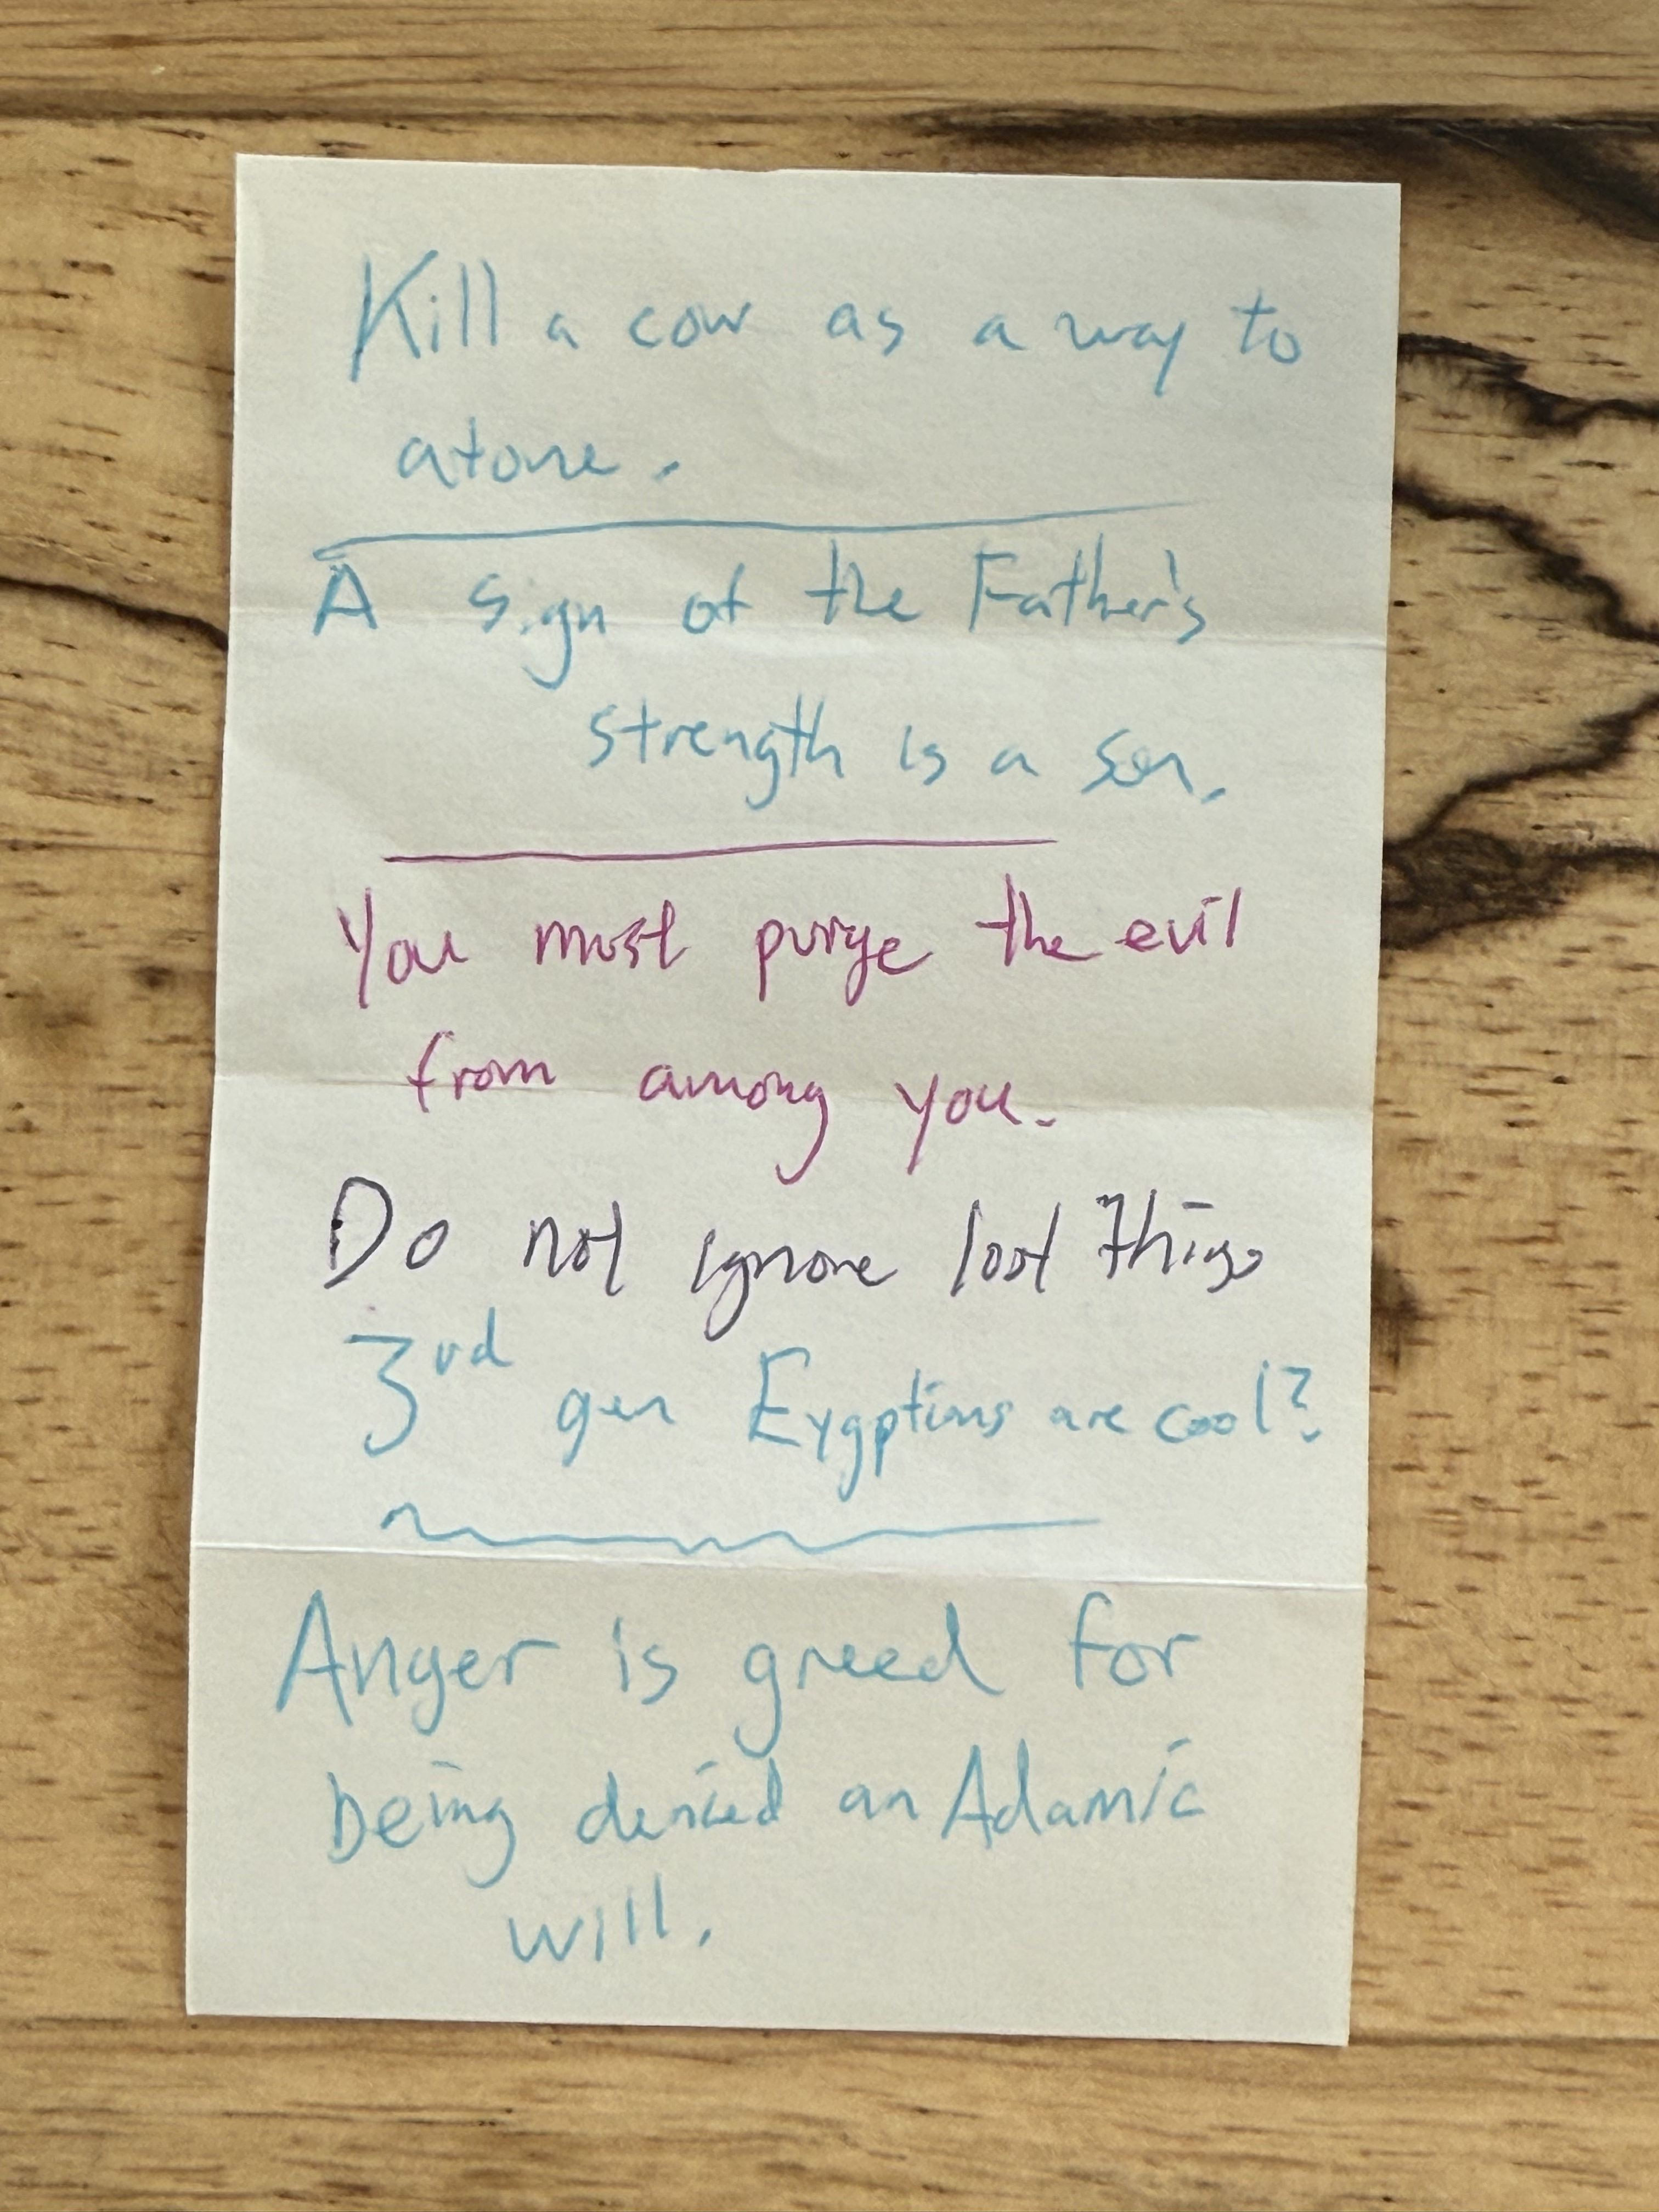 Kill a cow as a way to
atone.
A sign of the Father's
strength is a son.
You must purge the evil
from among you.
Do not ignore lost things
3rd gen Eygptians are cool?
Anger is greed for
being denied an Adamic
will.